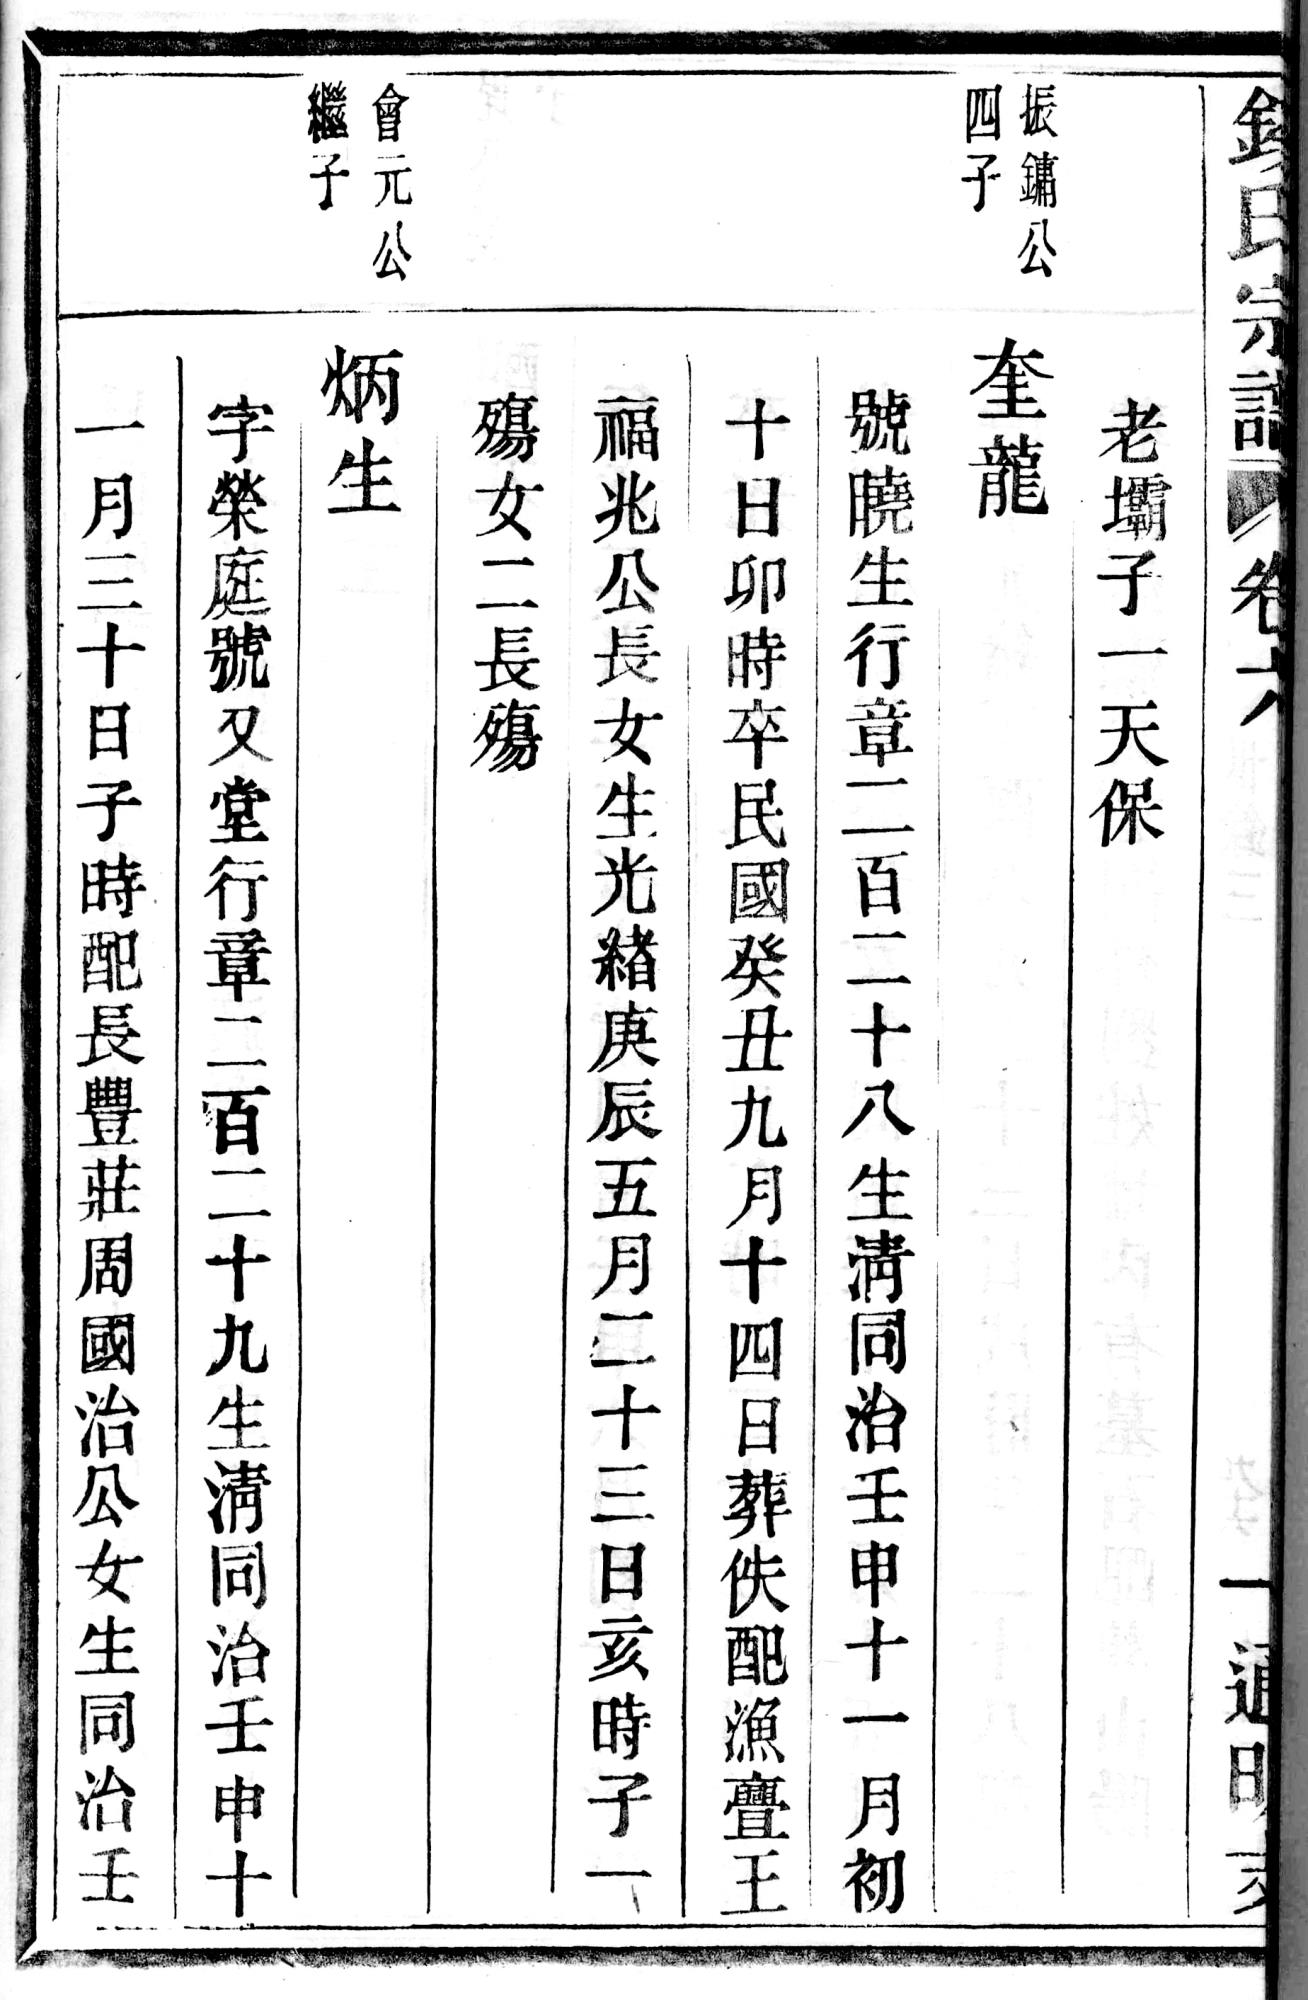 氏宗譜 卷六 一 通明支
老壩子一天保
振鏞公
四子
奎龍
號曉生行章二百二十八生淸同治壬申十一月初
十日卯時卒民國癸丑九月十四日葬佚配漁亹王
福兆公長女生光緒庚辰五月二十三日亥時子一
殤女二長殤
會元公
繼子
炳生
字榮庭號又堂行章二百二十九生淸同治壬申十
一月三十日子時配長豐莊周國治公女生同治壬